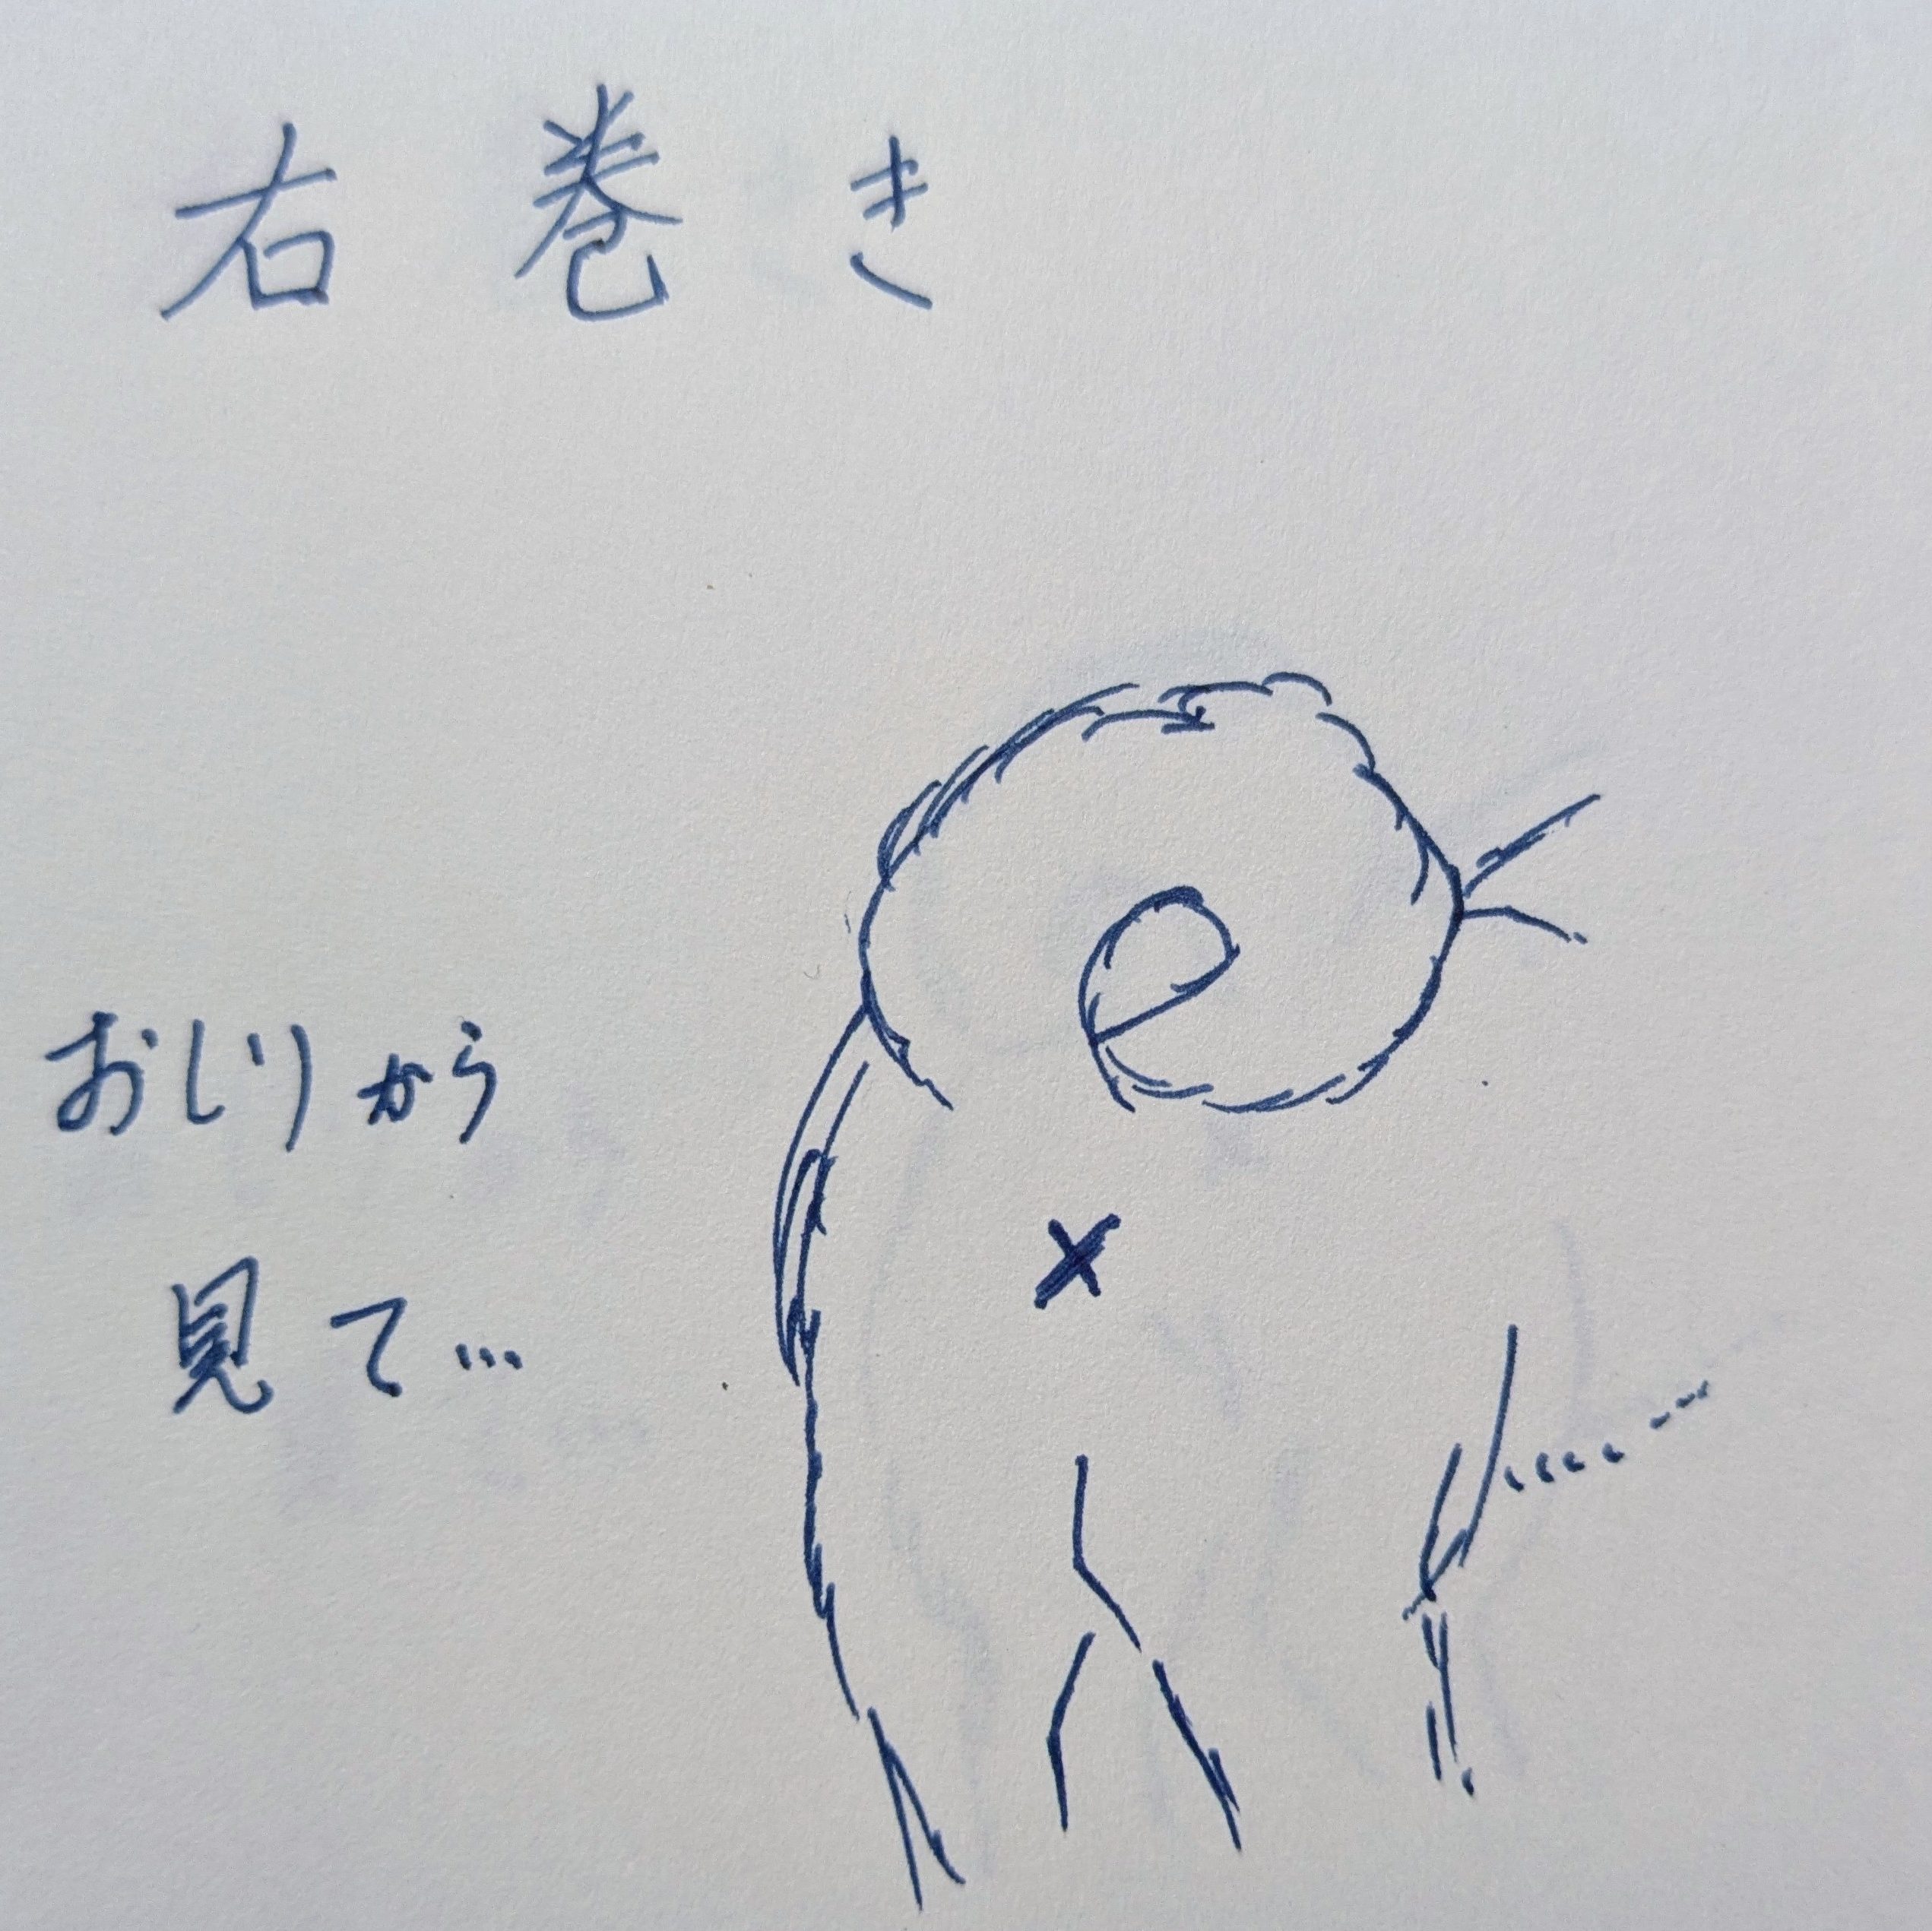 右巻き
おじりから
見て…